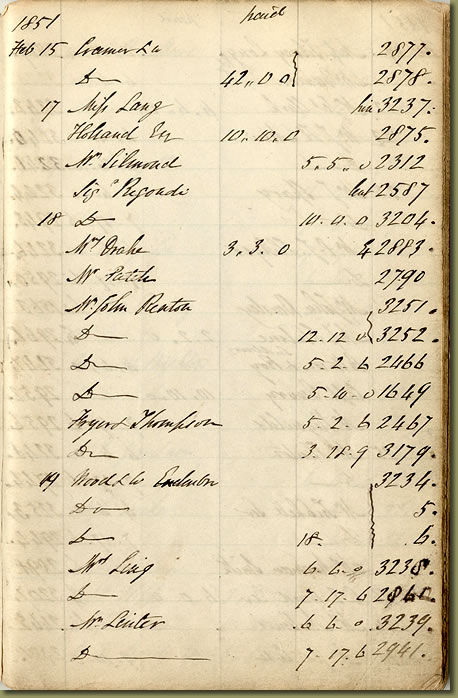 1851 paid
Feb 15 Cramer & Co 2877.
Do 42,,0 0 2878.
17 Miss Lang hire 3237.
Holland Esq 10.. 10. 0 2875.
Mr Silmond 5.. 5.. 0 2312
Sigr Regondi lent 2587
18 Do 10. 0. 0 3204.
Mrs Drake 3. 3. 0 & 2883.
Mr Patch 2790
Mr John Renton 3251.
Do 12. 12 0 3252.
Do 5. 2. 6 2466
Do 5. 10. 0 1649
Fryer & Thompson 5. 2. 6 2467
Do 3. 18. 9 3179.
19 Wood & Co 3234.
Do 5.
Do 18. 6.
Mrs 6. 6. 0 3238.
Do 7. 17. 6
Mr 6 6 0 3239.
Do 7. 17. 6 2941.